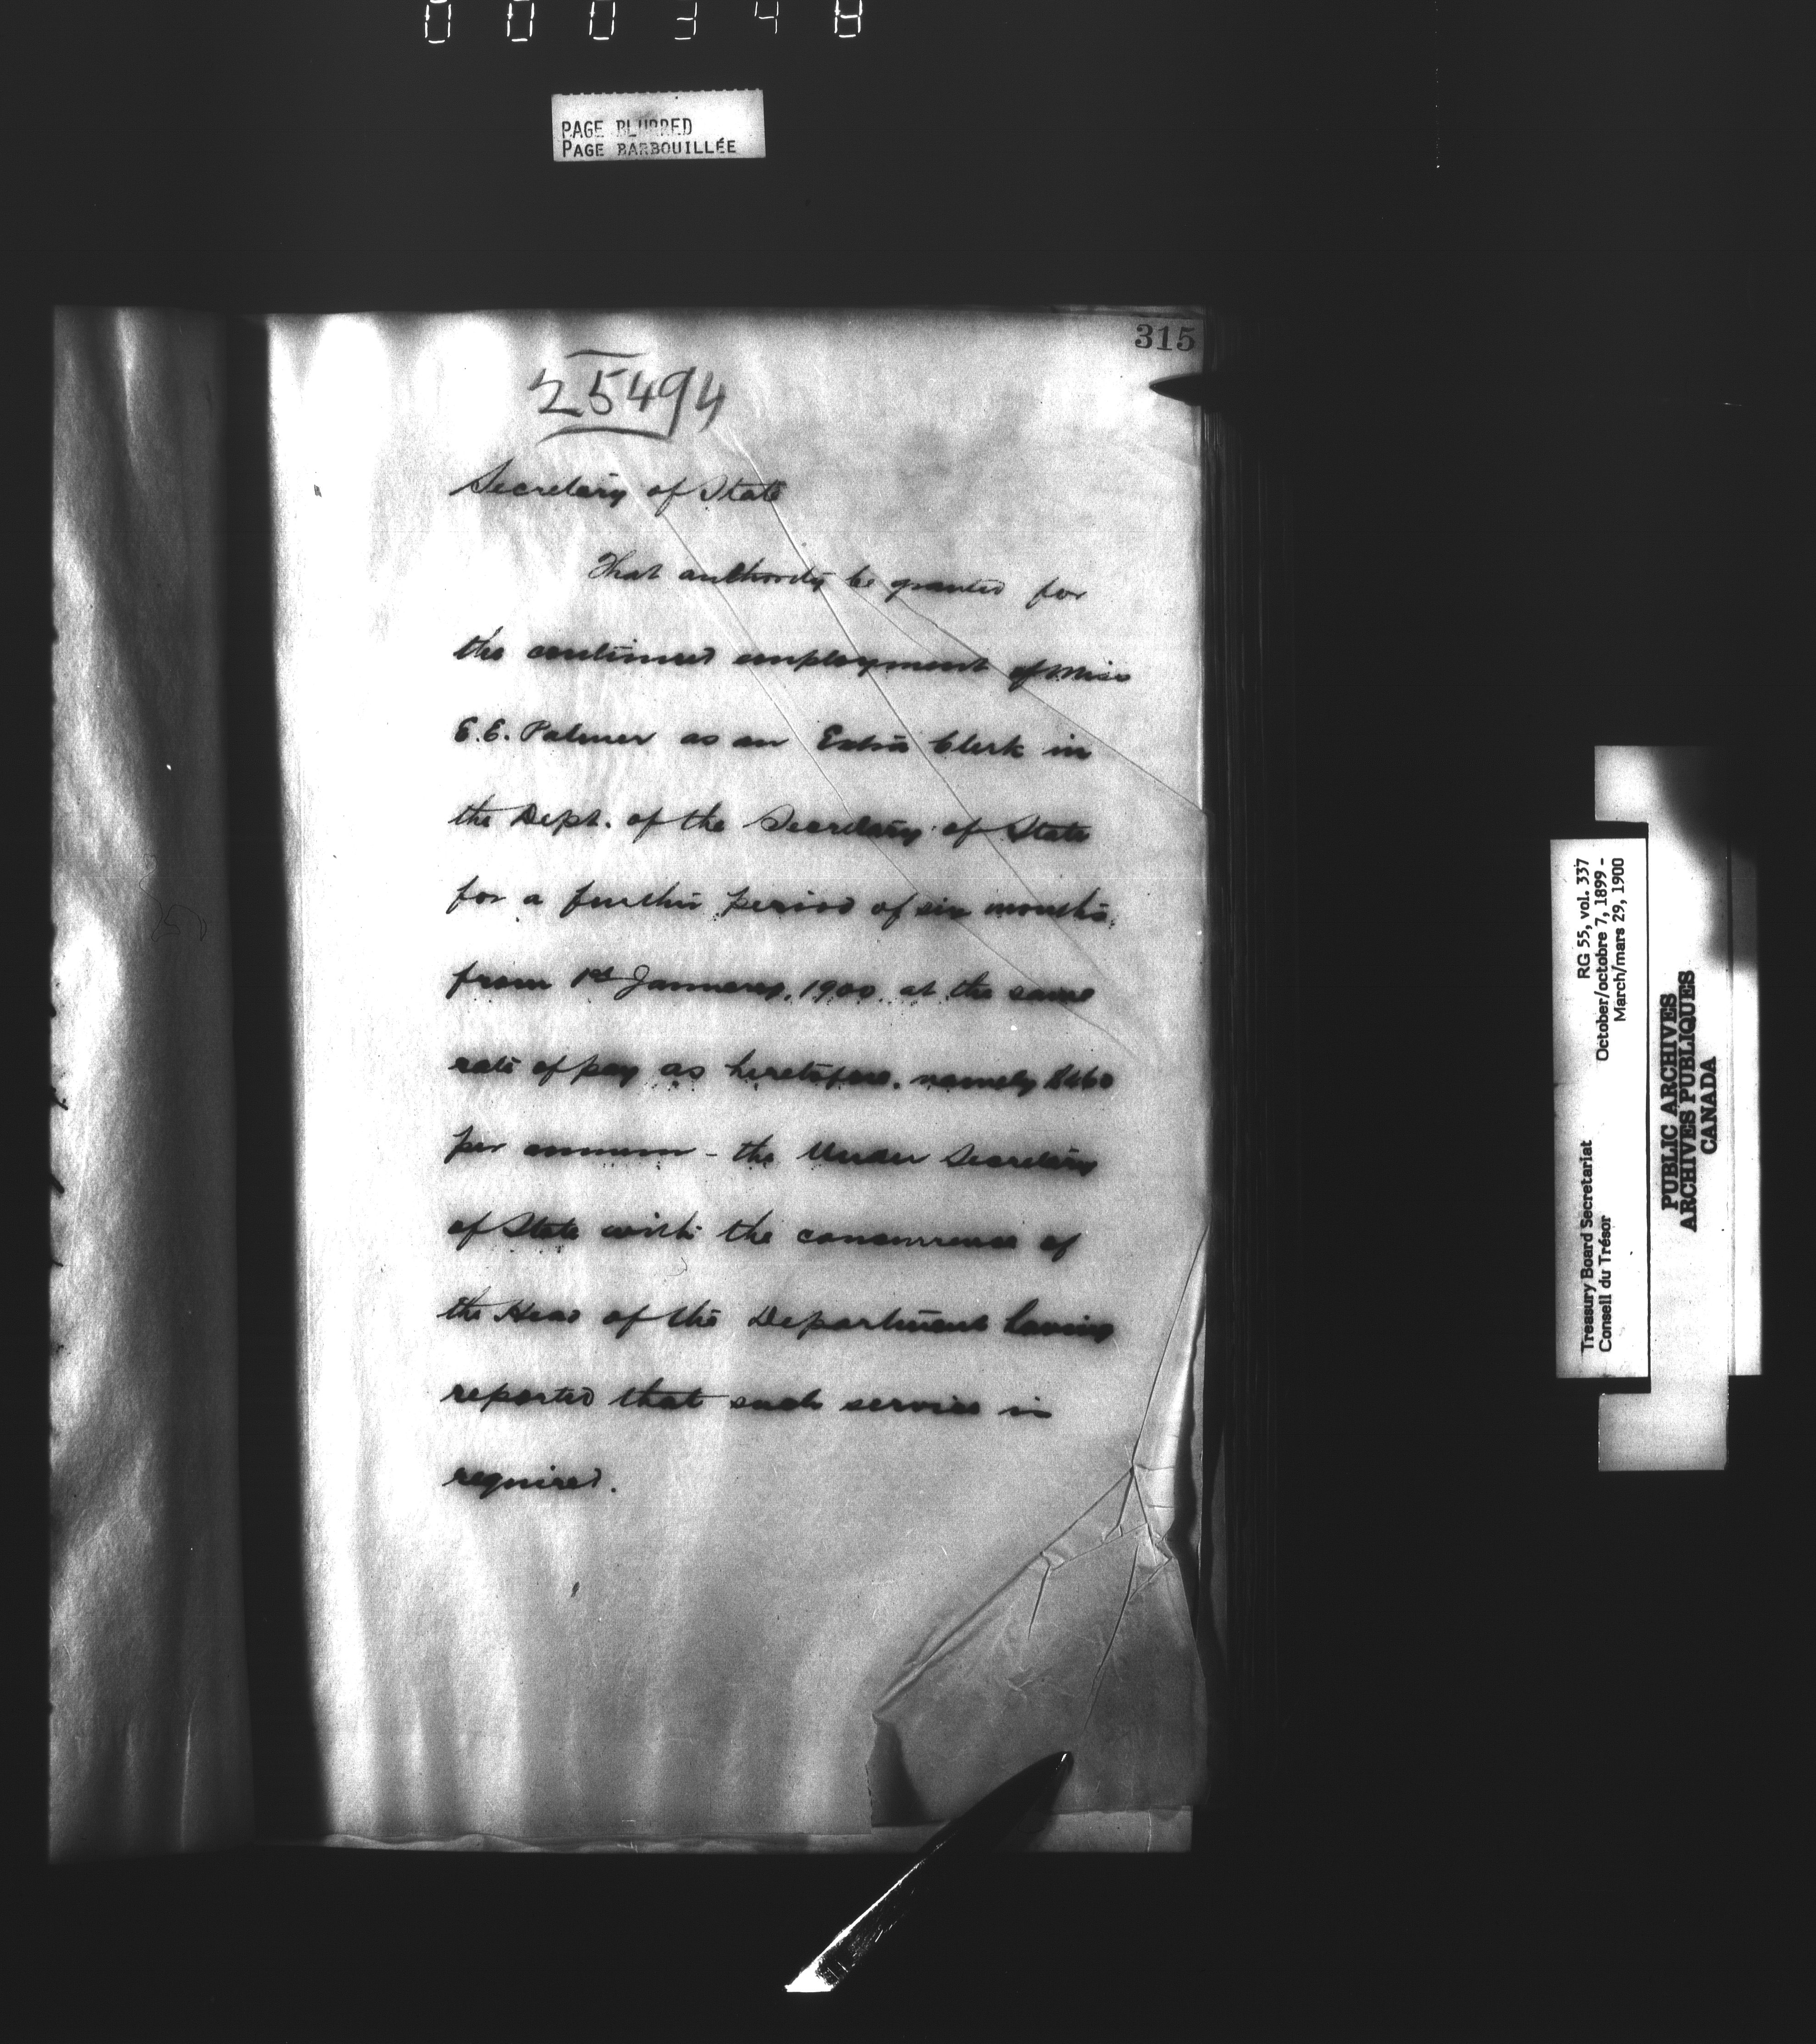 000348
PAGE BLURRED
PAGE BARBOUILLÉE
315
25494
Secretary of State
That authority be granted for
the continued employment of Miss
E.E. Palmer as an Extra Clerk in
the Dept. of the Secretary of State
for a further period of six months,
from 1st January, 1900, at the same
rate of pay as heretofore, namely $460
per annum - the Under Secretary
of State with the concurrence of
the Head of the Department having
reported that such service is
required.
Treasury Board Secretariat RG 55, vol. 337
Conseil du Trésor October/octobre 7, 1899 -
March/mars 29, 1900
PUBLIC ARCHIVES
ARCHIVES PUBLIQUES
CANADA